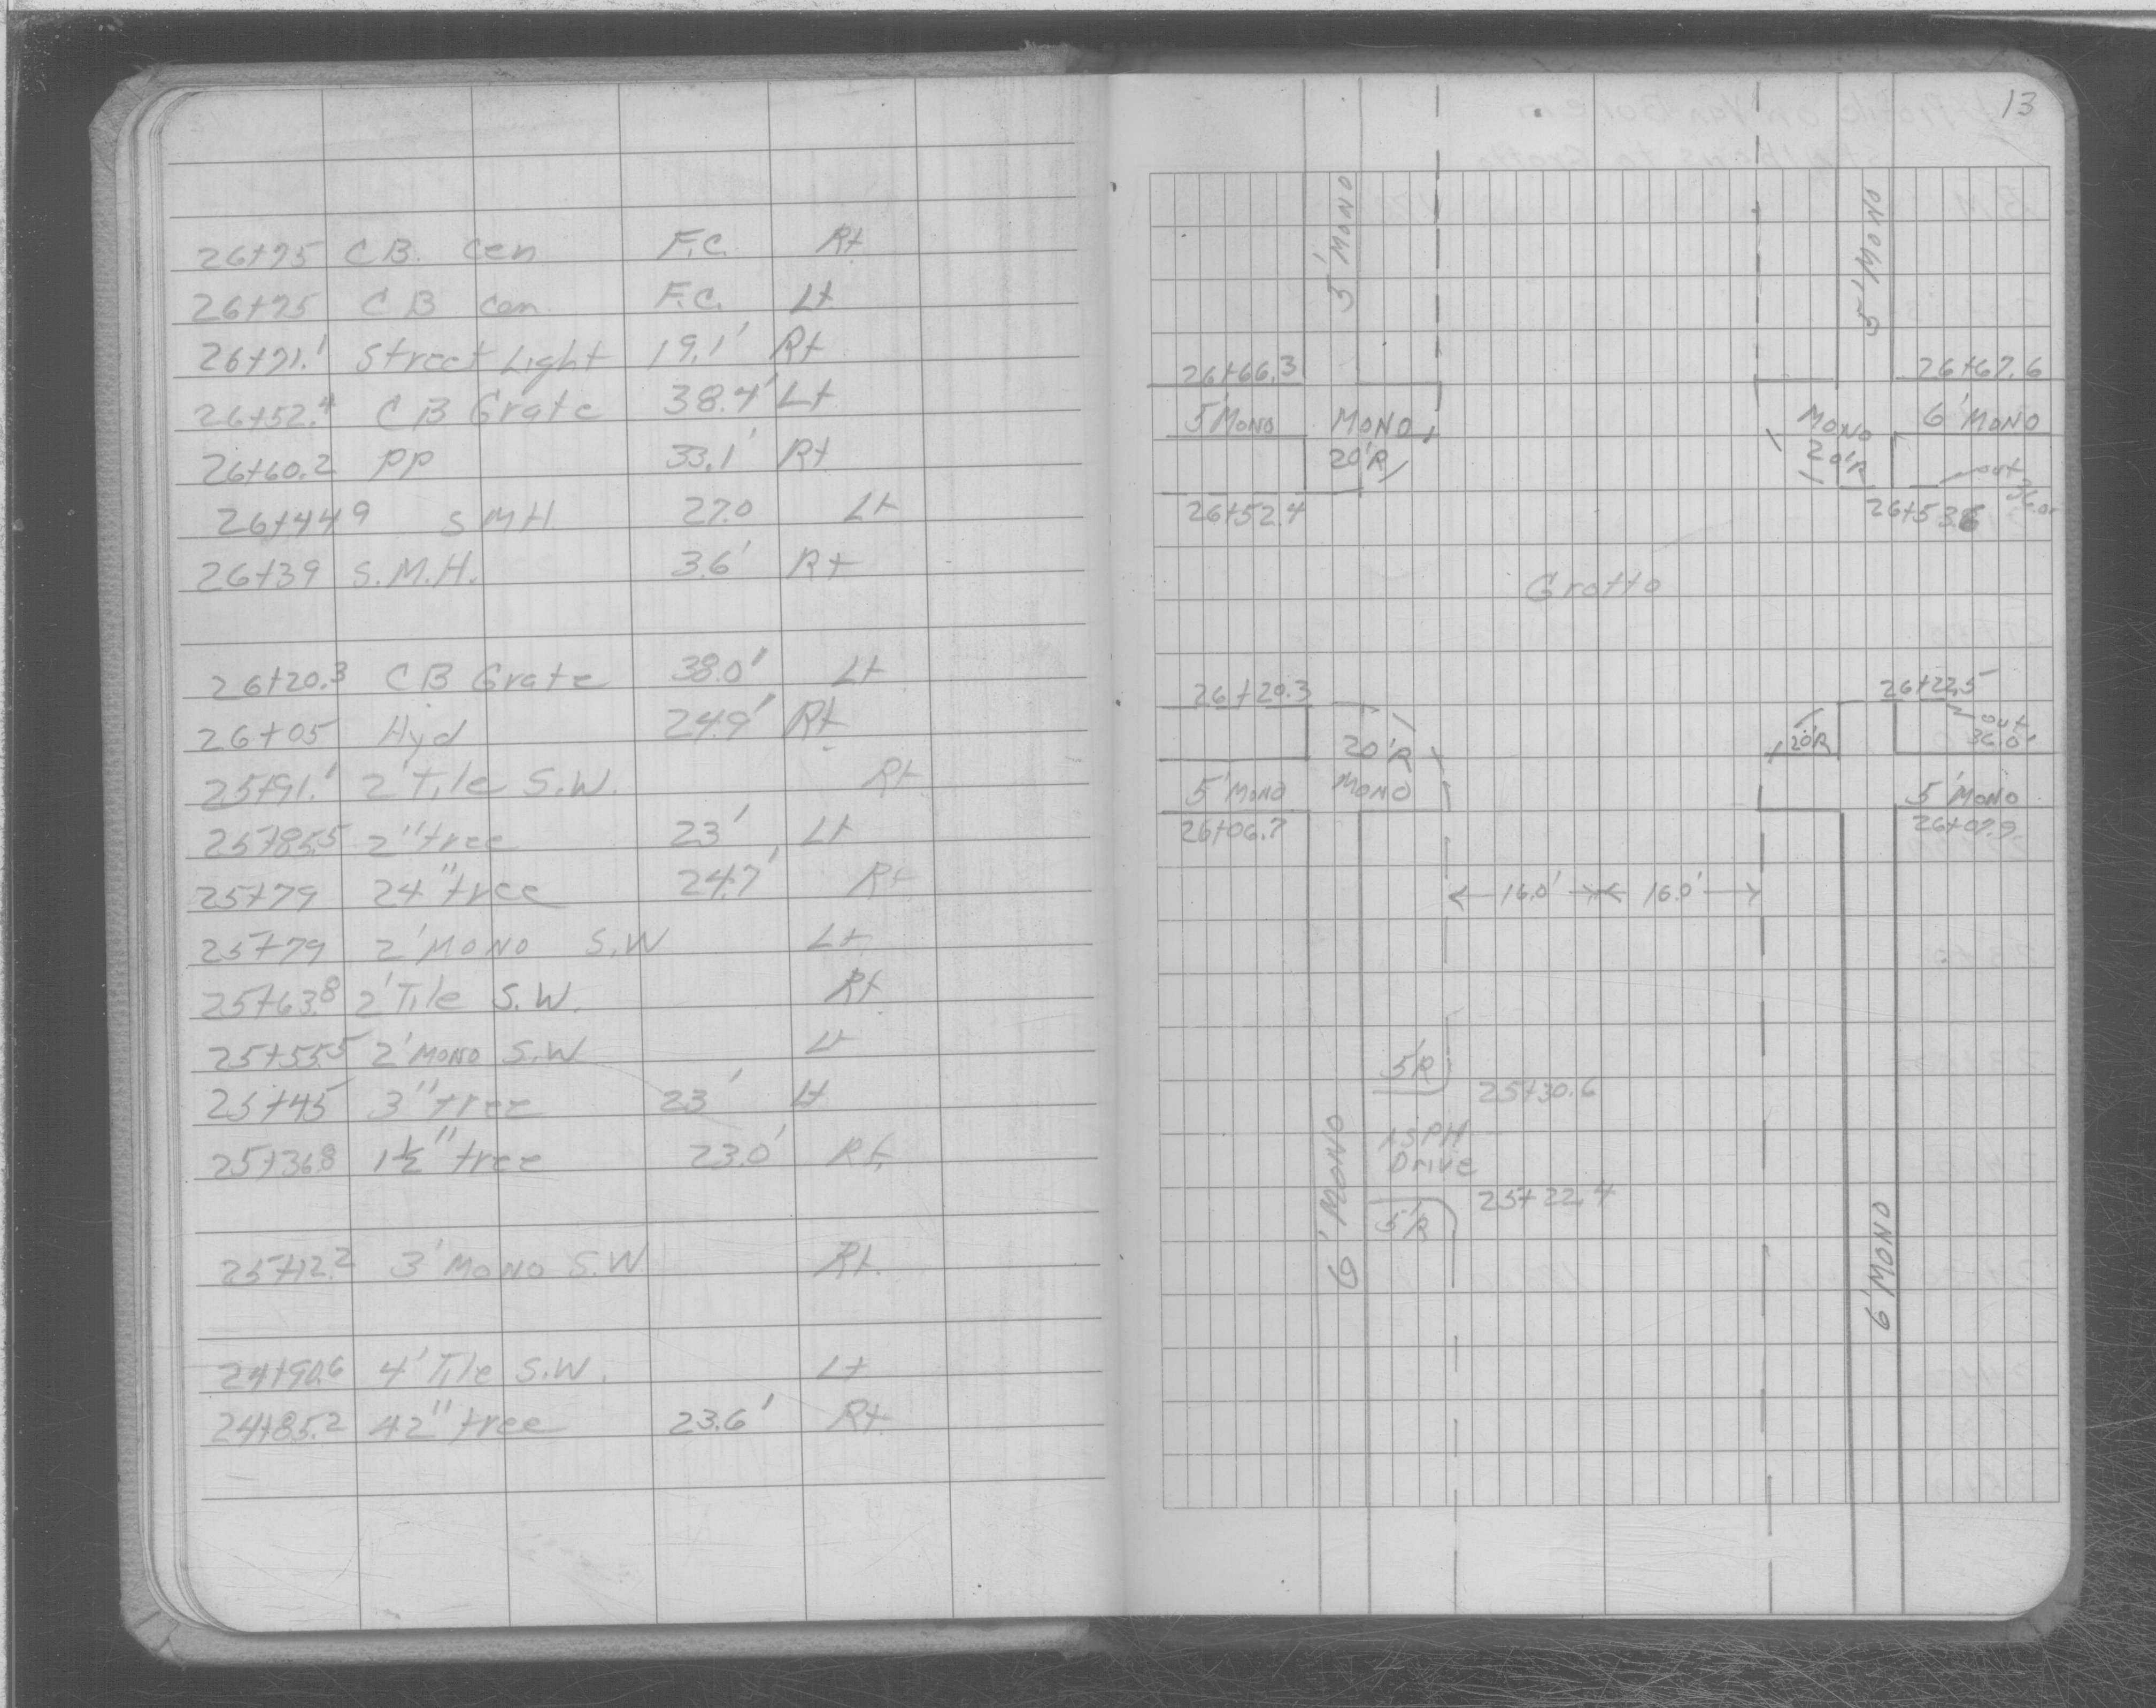 26+75 C B. cen F.C. Rt
26+75 C B cen. F.C. Lt
26+71.1 Street Light 19.1' Rt
26+52.4 C B Grate 38.4' Lt
26+60.2 PP 33.1' Rt
26+44.9 S M H 27.0 Lt
26+39 S.M.H. 3.6' Rt
26+20.3 C B Grate 38.0' Lt
26+05 Hyd 24.9' Rt
25+91.1 2' Tile S.W. Rt
25+85.5 2" tree 23' Lt
25+79 24" tree 24.7' Rt
25+79 2' MONO S.W Lt
25+63.8 2' Tile S.W. Rt
25+55.5 2' MONO S.W Lt
25+45 3" tree 23' Lt
25+36.8 1½" tree 23.0' Rt.
25+12.2 3' MONO S.W Rt.
24+90.6 4' Tile S.W. Lt
24+85.2 42" tree 23.6' Rt
13
5' MONO
5' MONO
26+66.3
26+67.6
5' MONO
MONO
20'R
MONO
20'R
6' MONO
out
36.0'
26+52.4
26+53.6
Grotto
26+20.3
26+22.5
20'R
MONO
20'R
out
36.0'
5' MONO
5' MONO
26+06.7
26+07.9
16.0'
16.0'
5'R
25+30.6
ASPH
Drive
25+22.4
5'R
6' MONO
6' MONO